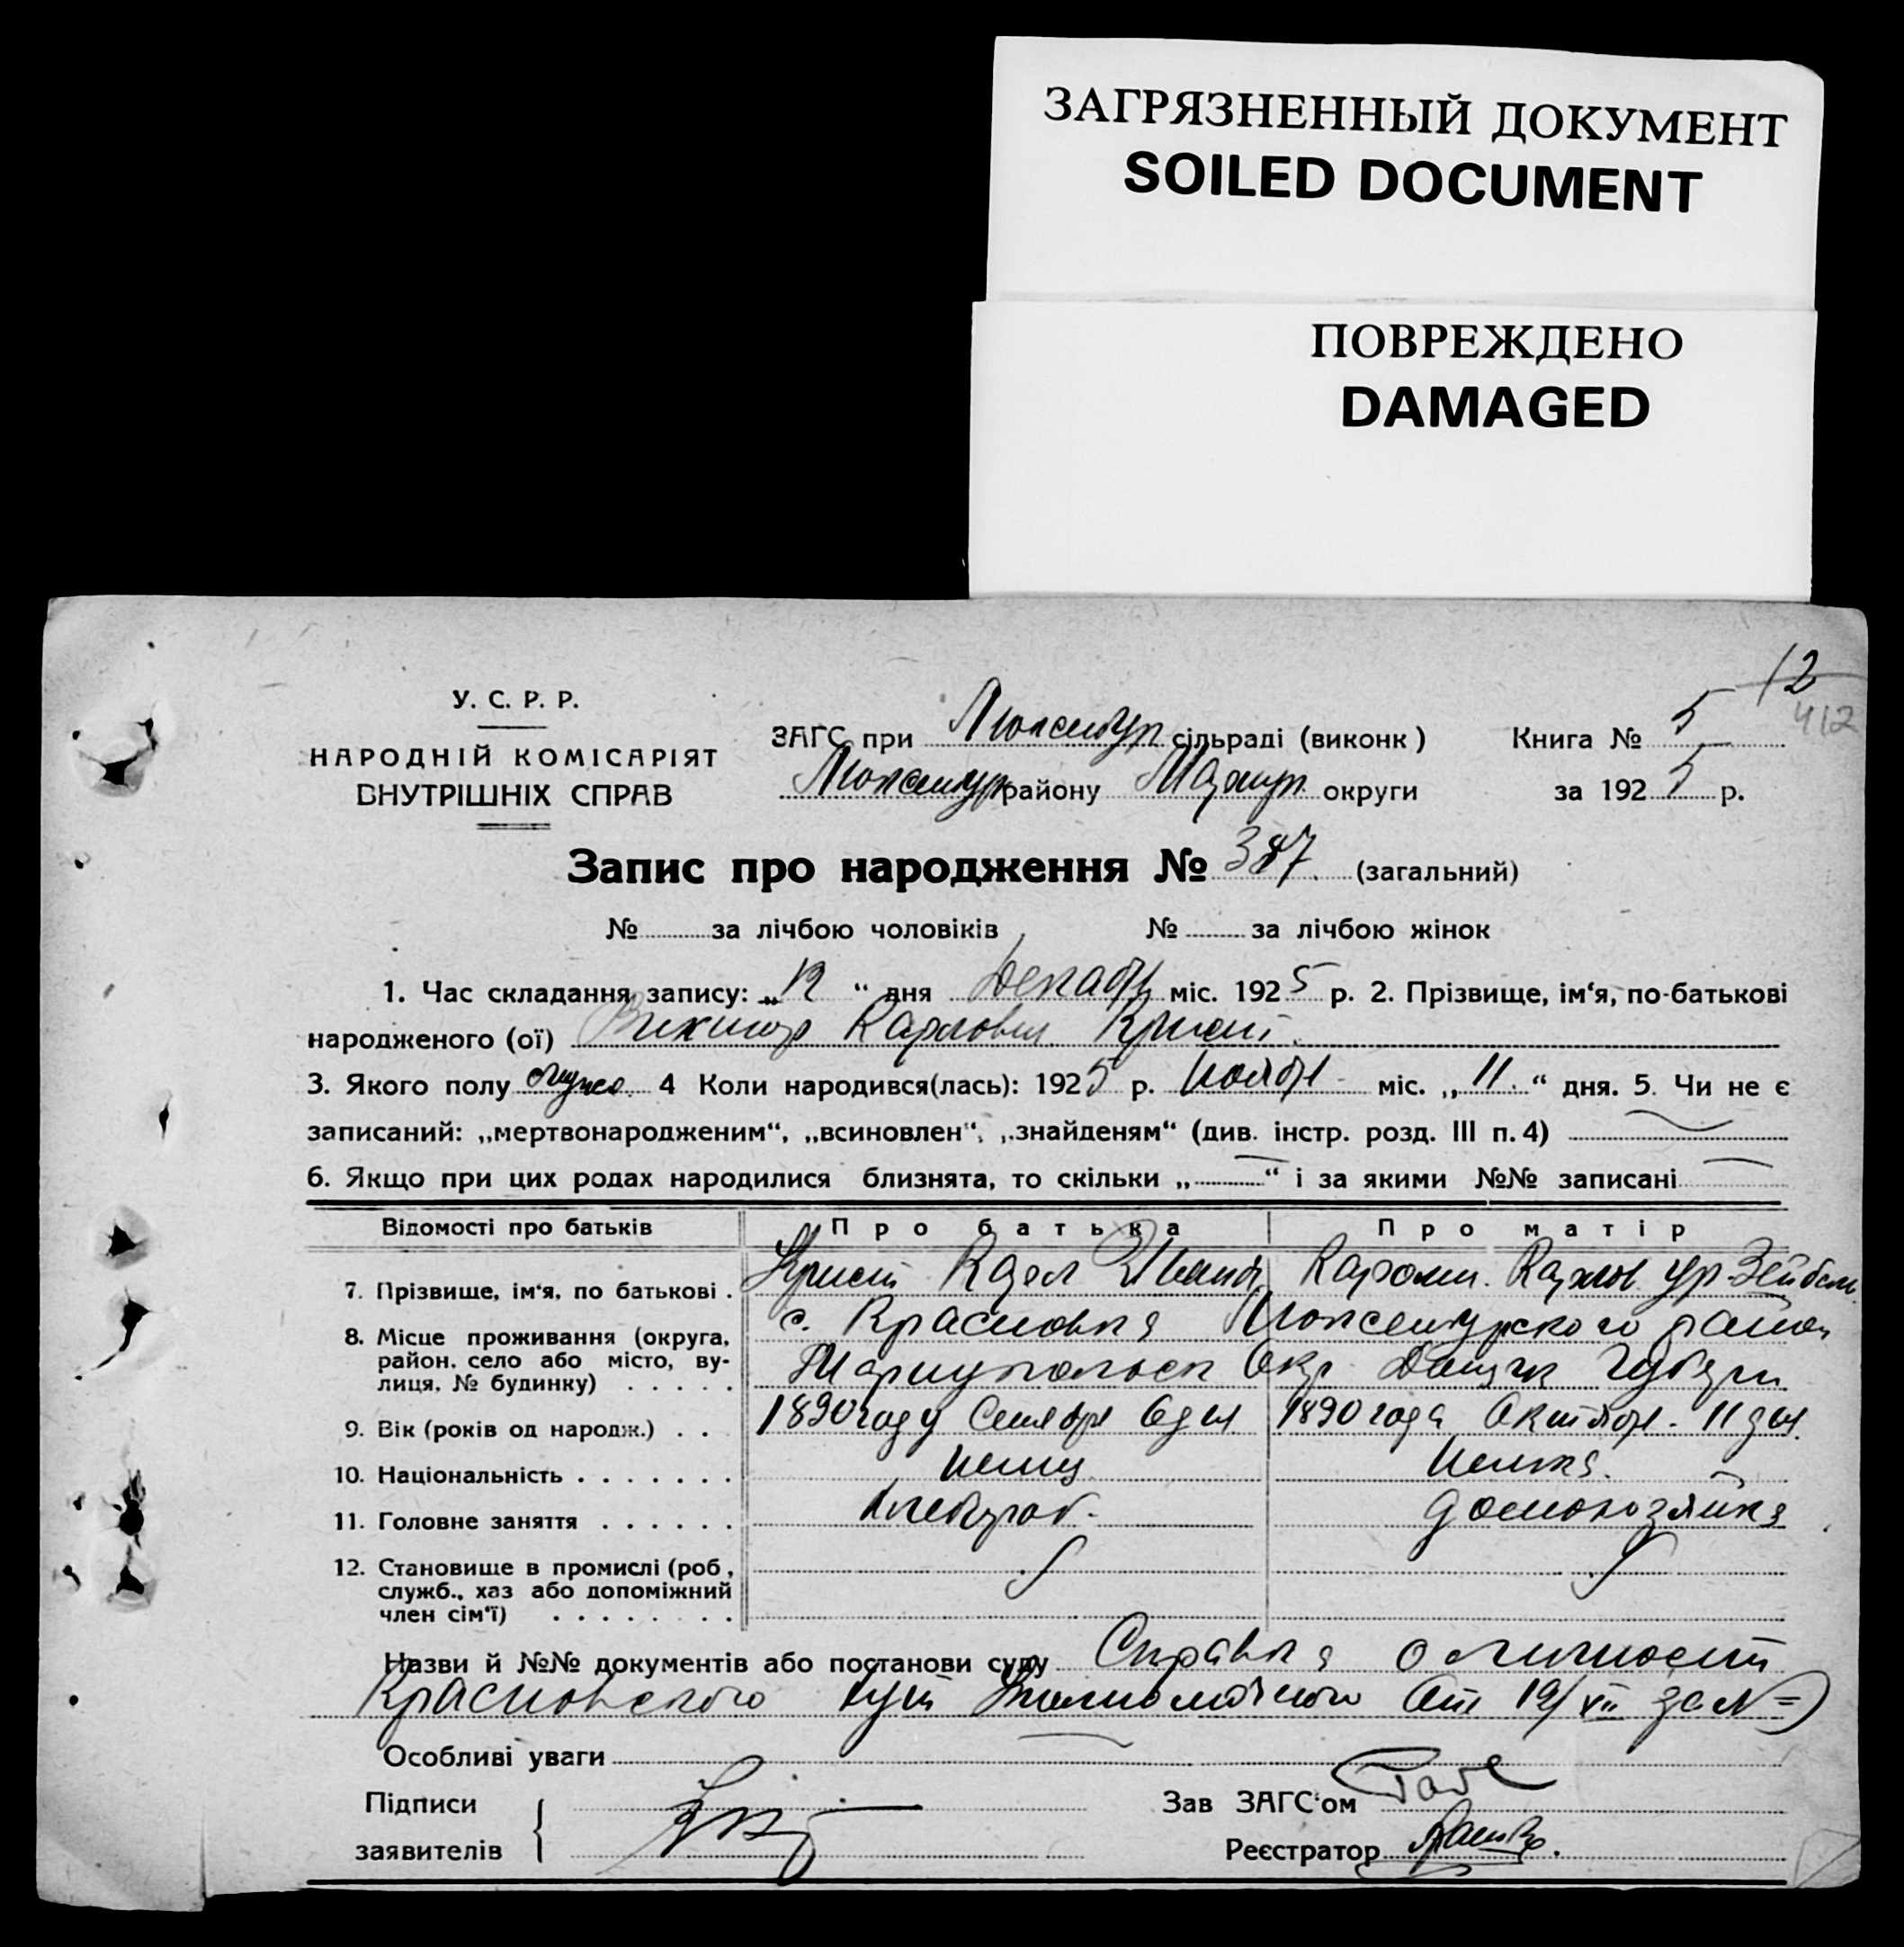 ЗАГРЯЗНЕННЫЙ ДОКУМЕНТ
SOILED DOCUMENT
ПОВРЕЖДЕНО
DAMAGED
12
412
У. С. Р. Р.
НАРОДНІЙ КОМІСАРІЯТ
ВНУТРІШНІХ СПРАВ
ЗАГС при Люксембур сільраді (виконк) Книга № 5
Люксембур району Маріуп. округи за 1925 р.
Запис про народження № 387. (загальний)
№ за лічбою чоловіків № за лічбою жінок
1. Час складання запису: „12“ дня Декабр міс. 1925 р. 2. Прізвище, ім‘я, по-батькові
народженого (ої) Виктор Карлович Крист.
3. Якого полу мужс. 4 Коли народився(лась): 1925 р. Ноябр міс. „11.“ дня. 5. Чи не є
записаний: „мертвонародженим“, „всиновлен“, „знайденям“ (див. інстр. розд. III п. 4)
6. Якщо при цих родах народилися близнята, то скільки „ “ і за якими №№ записані
Відомості про батьків Про батька Про матір
7. Прізвище, ім‘я, по батькові . Крист Карл Иван Каролин. Карлов. ур. Зейбель
8. Місце проживання (округа, район. село або місто, вулиця, № будинку) с. Красновка Люксембурского район
Мариупольск Окр. Донецк Губерн
9. Вік (років од народж.) . . 1890 году Сентябр 6 дня 1890 года Октябр. 11 дня.
10. Національність . . . . . . . немец немка.
11. Головне заняття . . . . . . хлебороб. домохозяйка
12. Становище в промислі (роб,
служб., хаз або допоміжний
член сім‘ї) . . . . . . . .
Назви й №№ документів або постанови суду Справка о личности
Красновского от 19/XII за №=)
Особливі уваги
Підписи
заявителів
Зав ЗАГС‘ом
Реєстратор